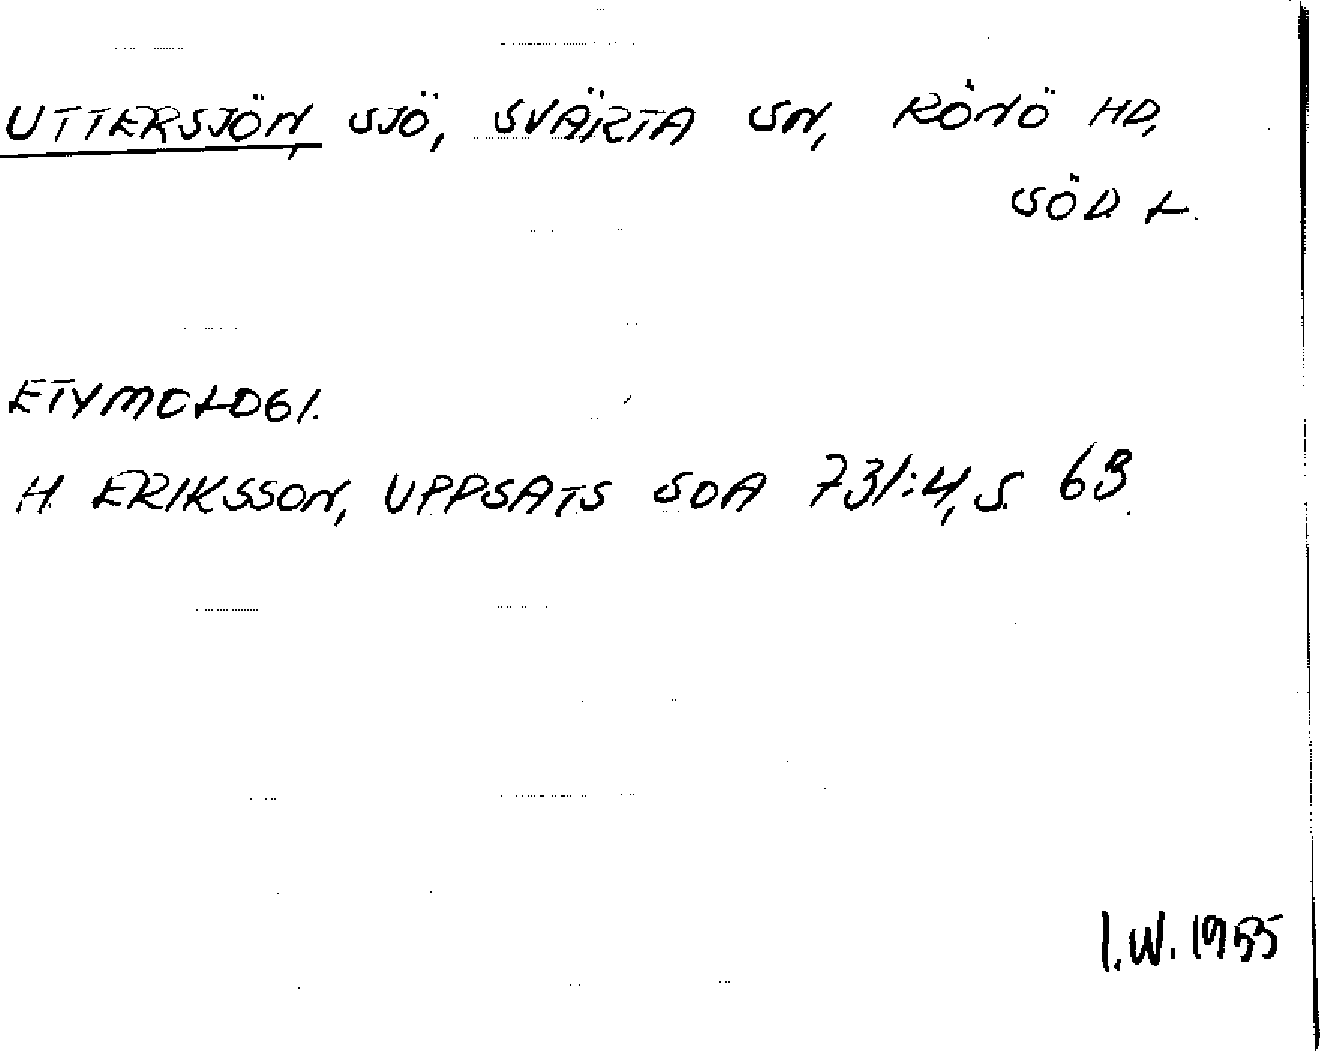 UTTERSJÖN, SJÖ, SVÄRTA SN, RÖNÖ HD,
SÖD L.
ETYMOLOGI.
H. ERIKSSON, UPPSATS SOA 731:4, S. 69.
I.W. 1955